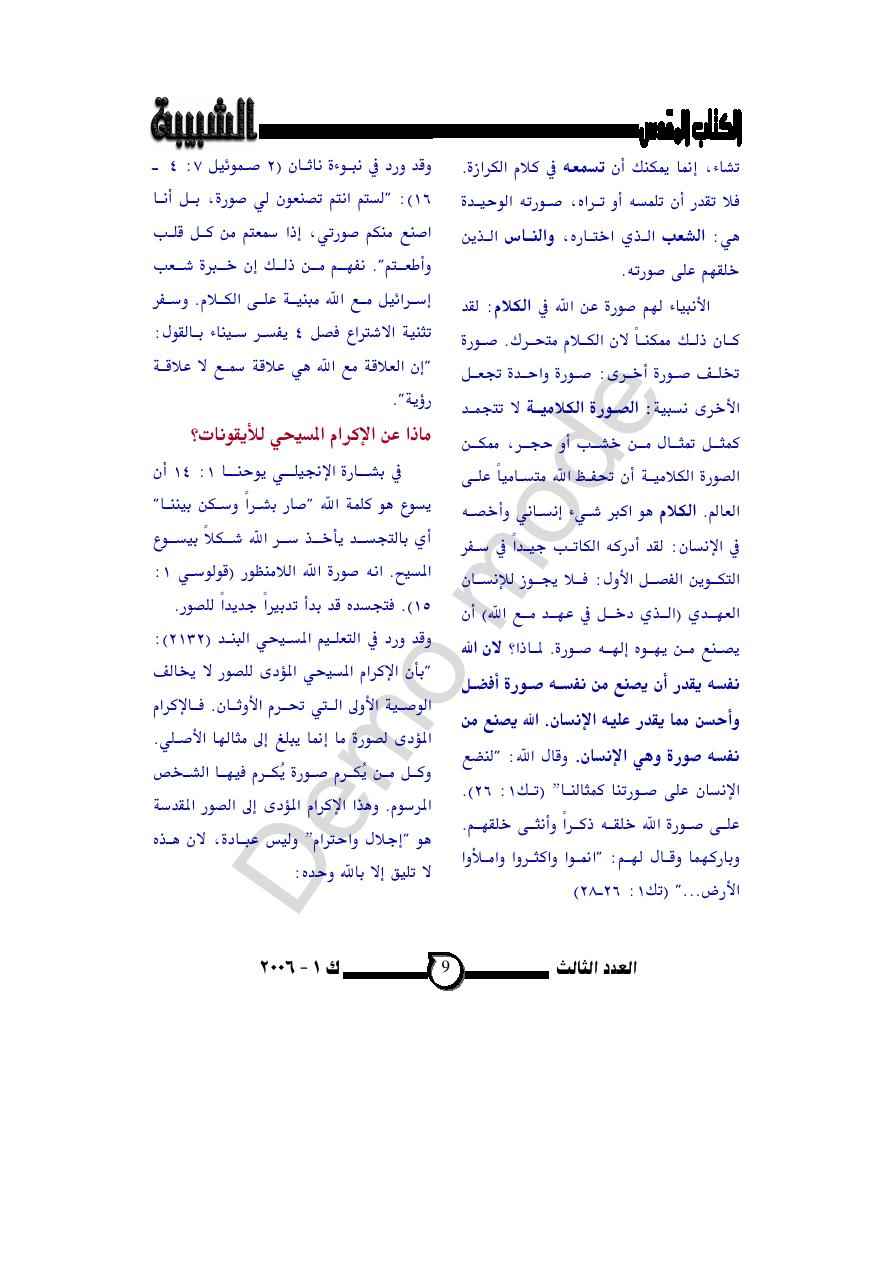 الكتاب المقدس
الشبيبة
تشاء، إنما يمكنك أن تسمعه في كلام الكرازة.
فلا تقدر أن تلمسه أو تراه، صورته الوحيدة
هي: الشعب الذي اختاره، والناس الذين
خلقهم على صورته.
الأنبياء لهم صورة عن الله في الكلام: لقد
كان ذلك ممكناً لان الكلام متحرك. صورة
تخلف صورة أخرى: صورة واحدة تجعل
الأخرى نسبية: الصورة الكلامية لا تتجمد
كمثل تمثال من خشب أو حجر، ممكن
الصورة الكلامية أن تحفظ الله متسامياً على
العالم. الكلام هو اكبر شيء إنساني وأخصه
في الإنسان: لقد أدركه الكاتب جيداً في سفر
التكوين الفصل الأول: فلا يجوز للإنسان
العهدي (الذي دخل في عهد مع الله) أن
يصنع من يهوه إلهه صورة. لماذا؟ لان الله
نفسه يقدر أن يصنع من نفسه صورة أفضل
وأحسن مما يقدر عليه الإنسان. الله يصنع من
نفسه صورة وهي الإنسان. وقال الله: "لنضع
الإنسان على صورتنا كمثالنا" (تك١: ٢٦).
على صورة الله خلقه ذكراً وأنثى خلقهم.
وباركهما وقال لهم: "انموا واكثروا واملأوا
الأرض..." (تك١: ٢٦-٢٨)
وقد ورد في نبوءة ناثان (٢ صموئيل ٧: ٤ -
١٦): "لستم انتم تصنعون لي صورة، بل أنا
اصنع منكم صورتي، إذا سمعتم من كل قلب
وأطعتم". نفهم من ذلك إن خبرة شعب
إسرائيل مع الله مبنية على الكلام. وسفر
تثنية الاشتراع فصل ٤ يفسر سيناء بالقول:
"إن العلاقة مع الله هي علاقة سمع لا علاقة
رؤية".
ماذا عن الإكرام المسيحي للأيقونات؟
في بشارة الإنجيلي يوحنا ١: ١٤ أن
يسوع هو كلمة الله "صار بشراً وسكن بيننا"
أي بالتجسد يأخذ سر الله شكلاً بيسوع
المسيح. انه صورة الله اللامنظور (قولوسي ١:
١٥). فتجسده قد بدأ تدبيراً جديداً للصور.
وقد ورد في التعليم المسيحي البند (٢١٣٢):
"بأن الإكرام المسيحي المؤدى للصور لا يخالف
الوصية الأولى التي تحرم الأوثان. فالإكرام
المؤدى لصورة ما إنما يبلغ إلى مثالها الأصلي.
وكل من يُكرم صورة يُكرم فيها الشخص
المرسوم. وهذا الإكرام المؤدى إلى الصور المقدسة
هو "إجلال واحترام" وليس عبادة، لان هذه
لا تليق إلا بالله وحده:
Demo mode
العدد الثالث
9
ك ١ - ٢٠٠٦